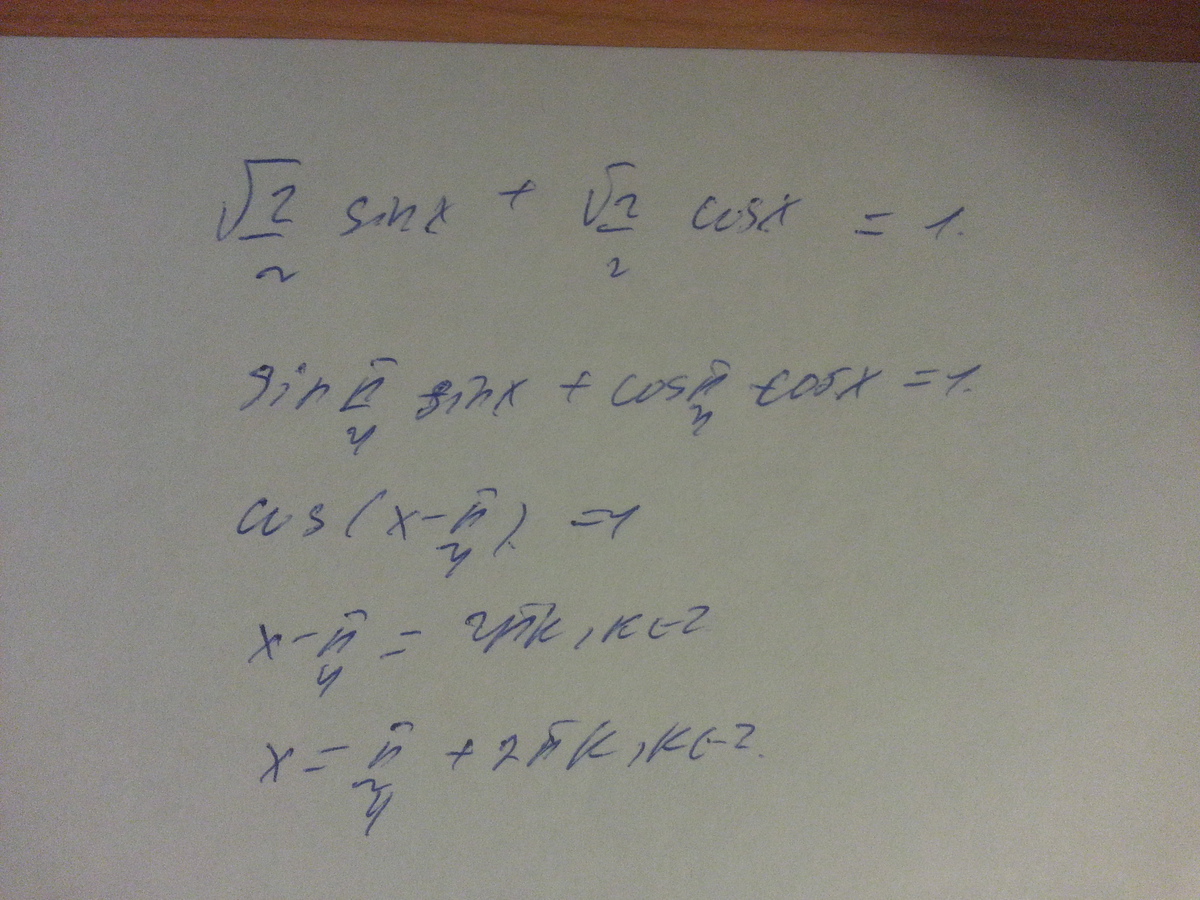 √2/2 sinx + √2/2 cosx = 1.
sin π/4 sinx + cos π/4 cosx = 1.
cos(x - π/4) = 1
x - π/4 = 2πk, k∈Z
x = π/4 + 2πk, k∈Z.